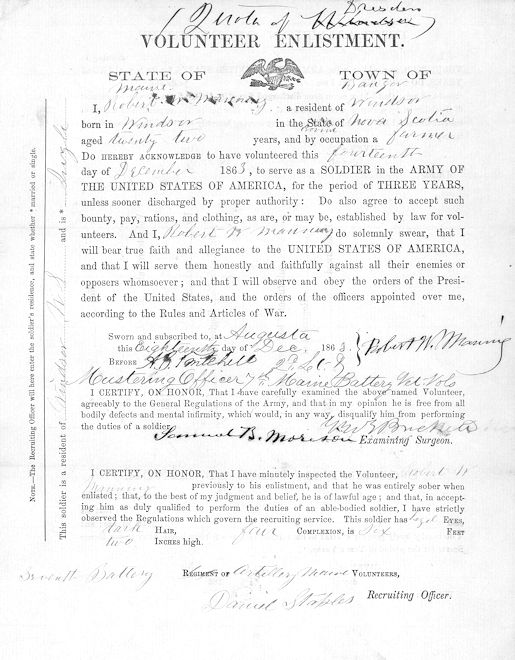 Dresden
(Quota of Richardson)
VOLUNTEER ENLISTMENT.
STATE OF TOWN OF
Maine Bangor
I, Robert W Manning a resident of Windsor
born in Windsor in the State of Nova Scotia
aged twenty two years, and by occupation a farmer
Do HEREBY ACKNOWLEDGE to have volunteered this fourteenth
day of December 1863, to serve as a SOLDIER in the ARMY OF
THE UNITED STATES OF AMERICA, for the period of THREE YEARS,
unless sooner discharged by proper authority : Do also agree to accept such
bounty, pay, rations, and clothing, as are, or may be, established by law for vol-
unteers. And I, Robert W Manning do solemnly swear, that I
will bear true faith and allegiance to the UNITED STATES OF AMERICA,
and that I will serve them honestly and faithfully against all their enemies or
opposers whomsoever ; and that I will observe and obey the orders of the Presi-
dent of the United States, and the orders of the officers appointed over me,
according to the Rules and Articles of War.
Sworn and subscribed to, at Augusta
this Eighteenth day of Dec. 1863. Robert W. Manning
BEFORE
Mustering Officer 7th Maine Battery Vet. Vols
I CERTIFY, ON HONOR, That I have carefully examined the above named Volunteer,
agreeably to the General Regulations of the Army, and that in my opinion he is free from all
bodily defects and mental infirmity, which would, in any way, disqualify him from performing
the duties of a soldier.
Samuel B. Morison Examining Surgeon.
I CERTIFY, ON HONOR, That I have minutely inspected the Volunteer, Robert W
Manning previously to his enlistment, and that he was entirely sober when
enlisted ; that, to the best of my judgment and belief, he is of lawful age ; and that, in accept-
ing him as duly qualified to perform the duties of an able-bodied soldier, I have strictly
observed the Regulations which govern the recruiting service. This soldier has hazel EYES,
dark HAIR, fair COMPLEXION, is six FEET
two INCHES high.
Seventh Battery REGIMENT OF Artillery Maine VOLUNTEERS,
Daniel Staples Recruiting Officer.
This soldier is a resident of Windsor N. S. and is * Single
NOTE.—The Recruiting Officer will here enter the soldier's residence, and state whether * married or single.